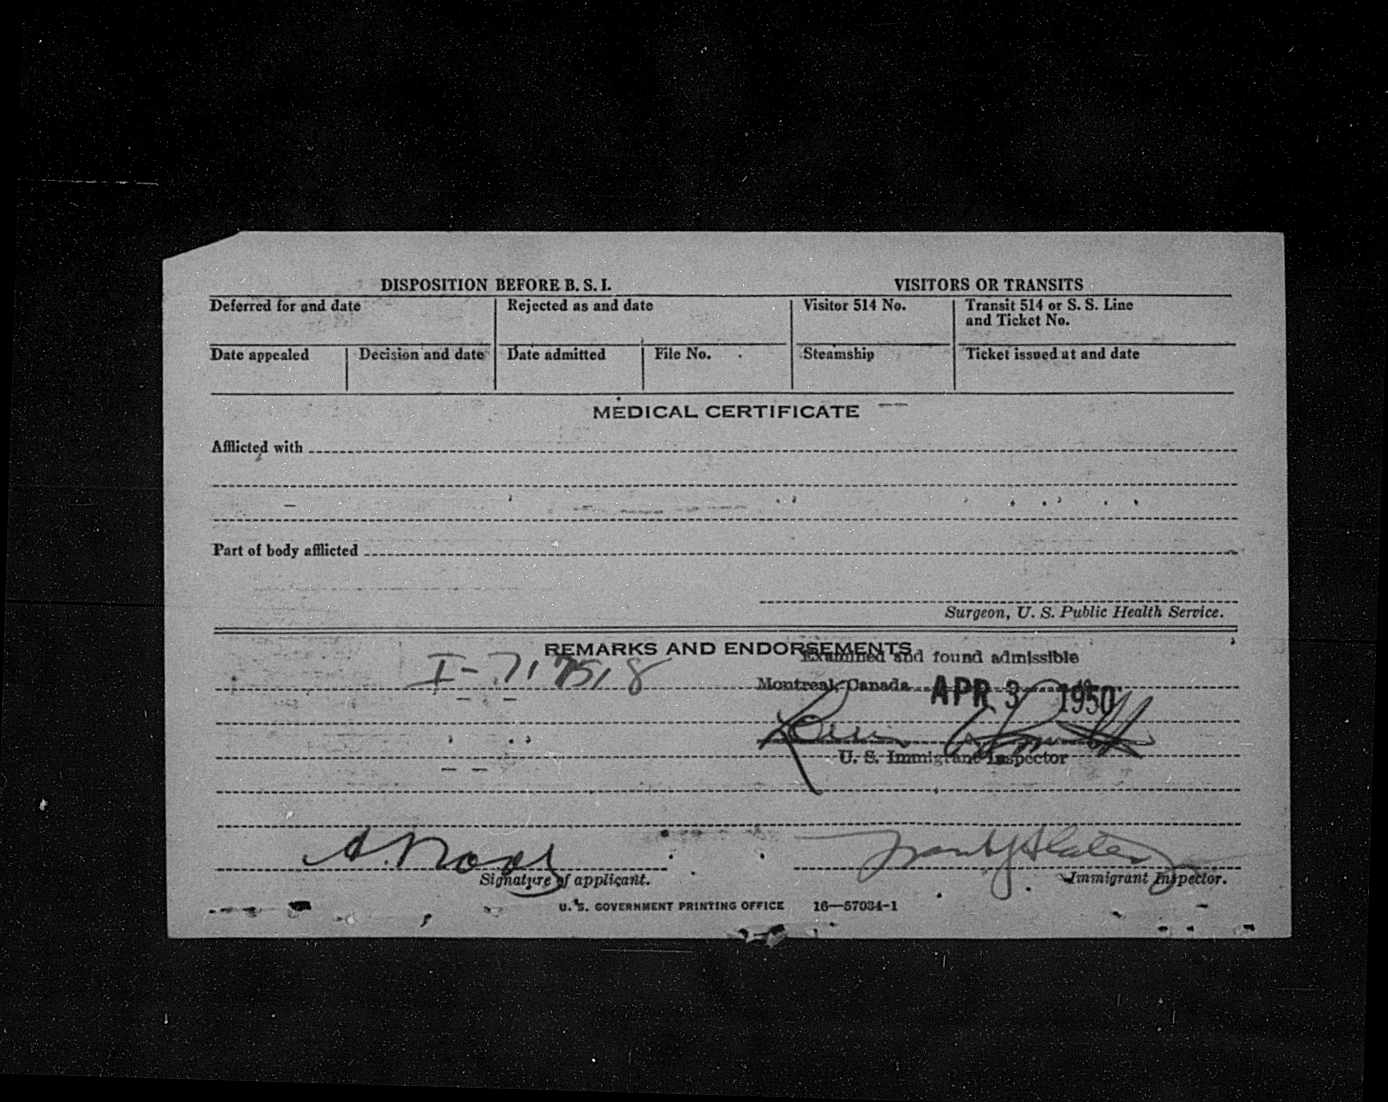 DISPOSITION BEFORE B. S. I. VISITORS OR TRANSITS
Deferred for and date Rejected as and date Visitor 514 No. Transit 514 or S. S. Line
and Ticket No.
Date appealed Decision and date Date admitted File No. Steamship Ticket issued at and date
MEDICAL CERTIFICATE
Afflicted with
Part of body afflicted
Surgeon, U. S. Public Health Service.
REMARKS AND ENDORSEMENTS
Examined and found admissible
I-717518
Montreal, Canada APR 3 1950
U. S. Immigrant Inspector
A.
Slater
Signature of applicant. Immigrant Inspector.
U. S. GOVERNMENT PRINTING OFFICE 16—57034-1